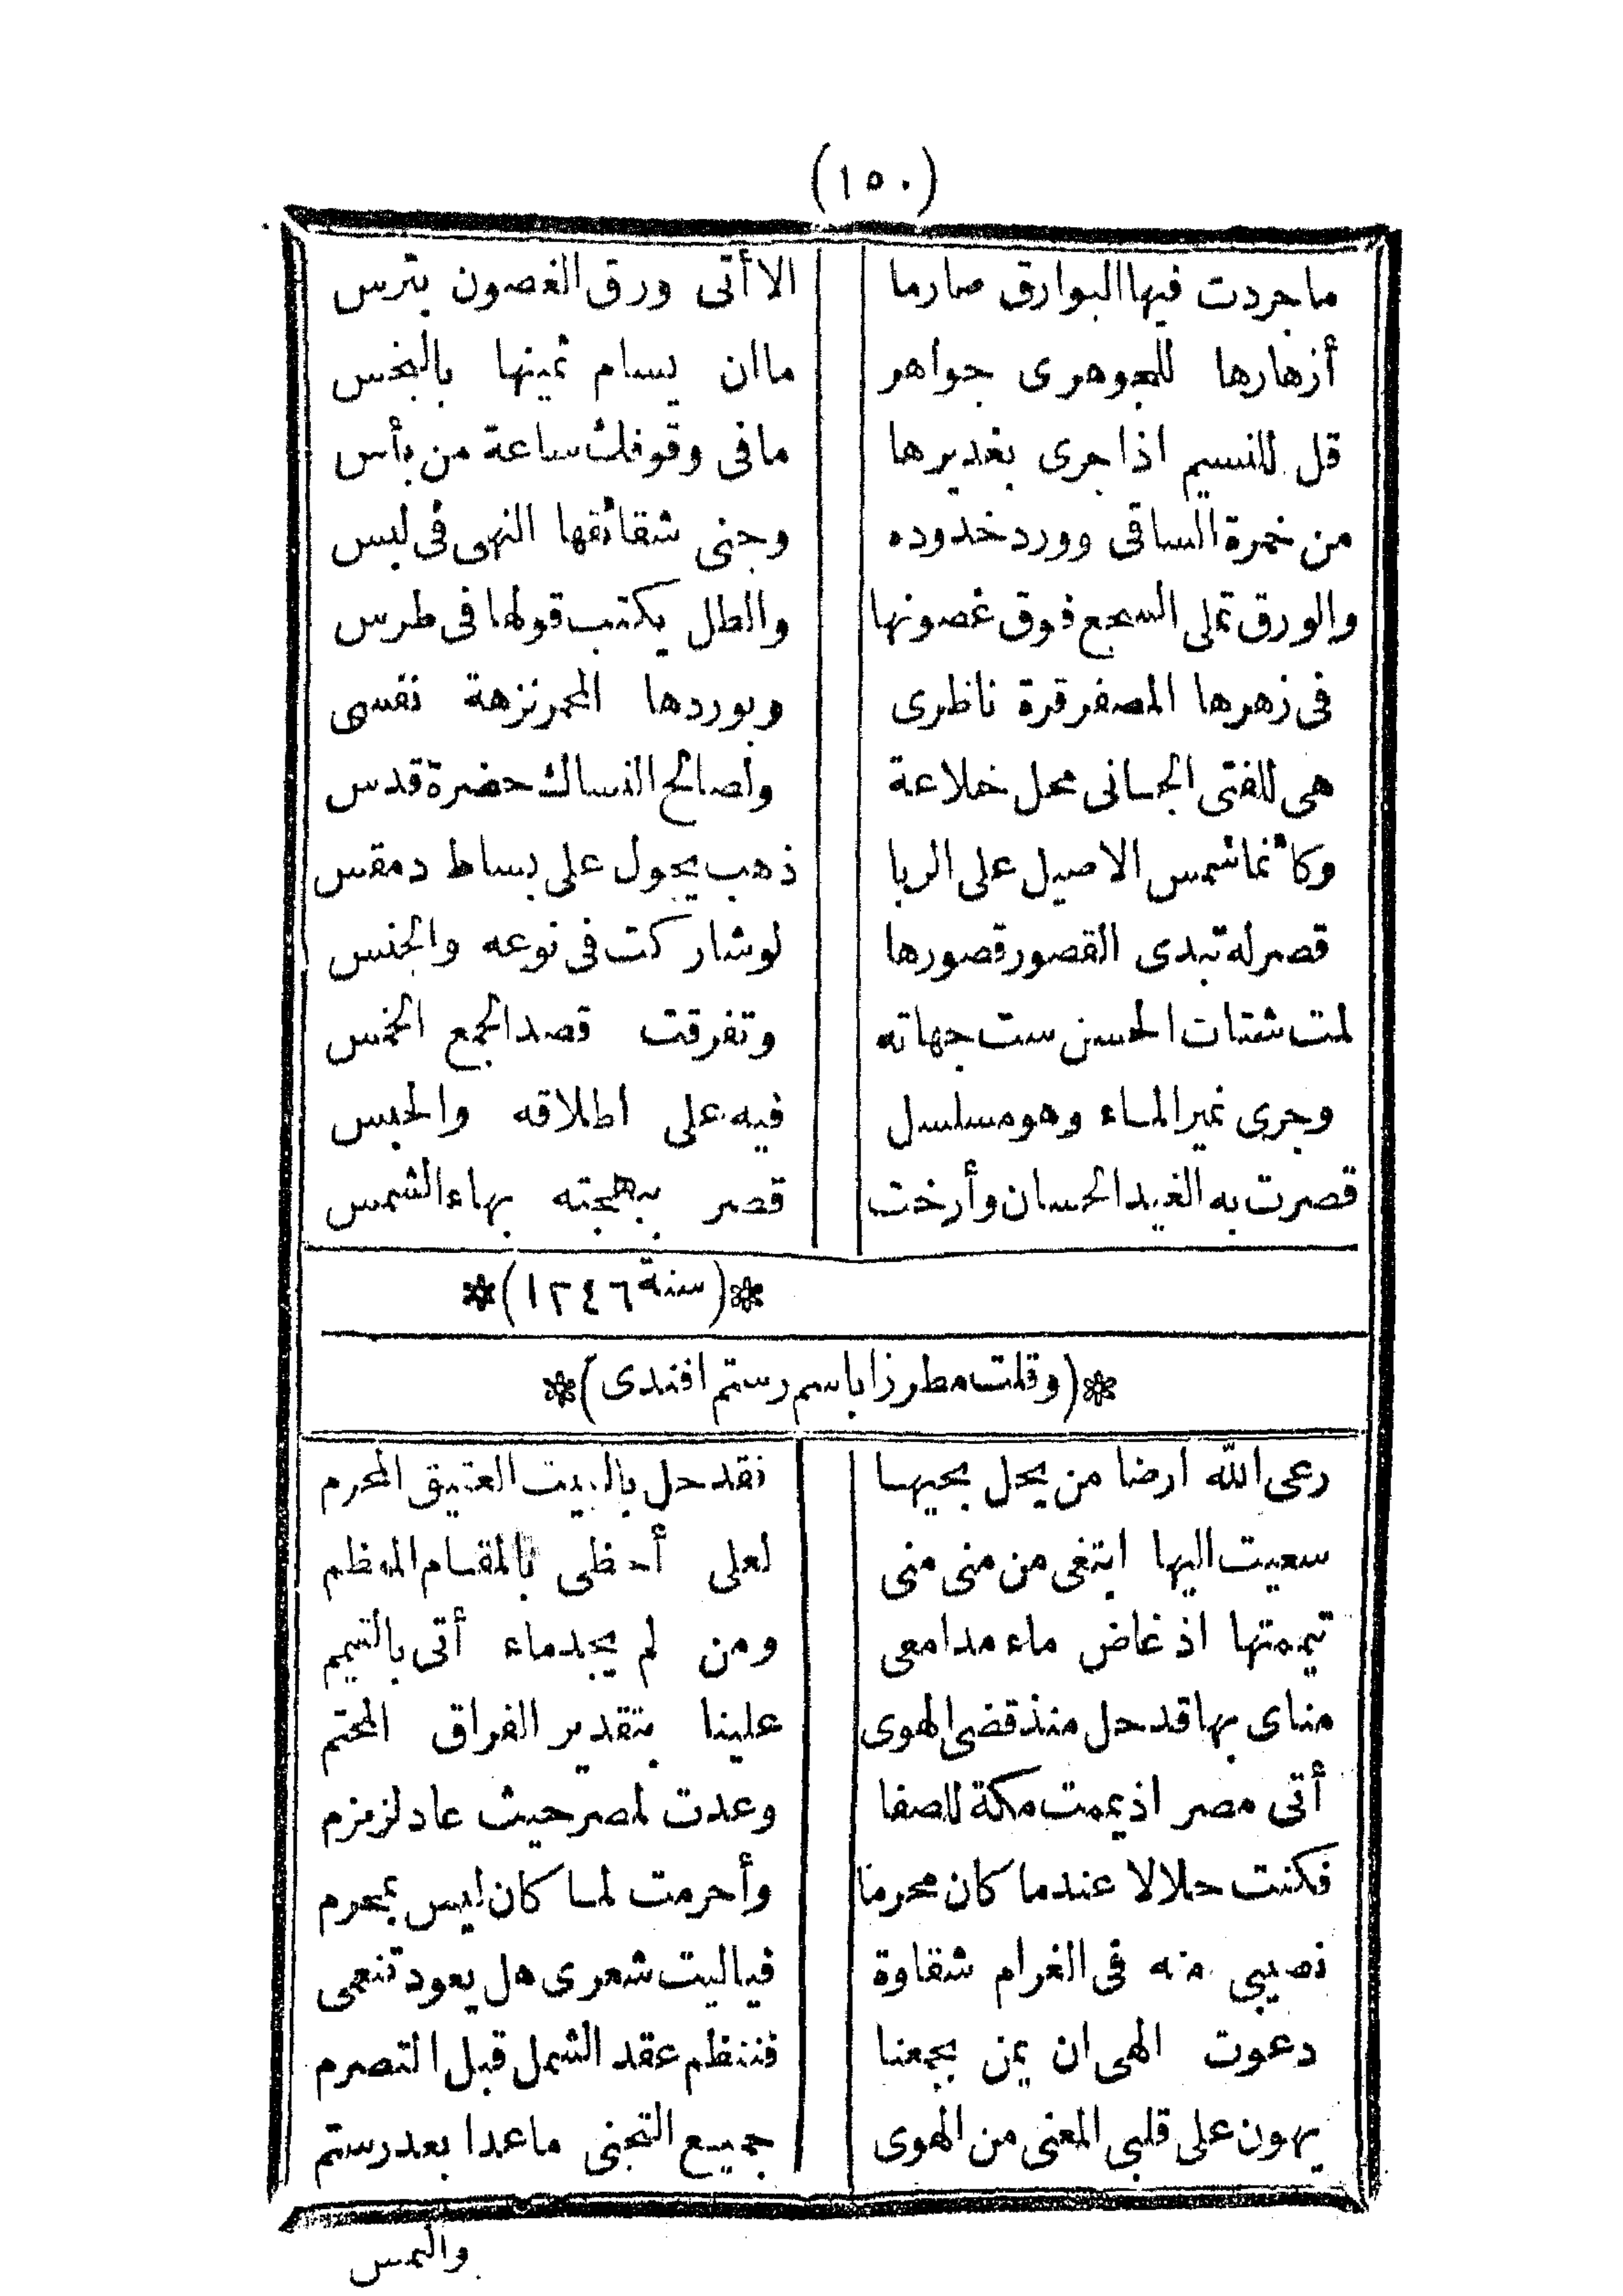 (١٥٠)
ماجردت فيها البوارق صارما الا أتى ورق الغصون بترس
أزهارها للجوهرى جواهر ما ان يسام ثمينها بالبخس
قل للنسيم اذا جرى بغديرها ما فى وقوفك ساعة من بأس
من خمرة الساقى وورد خدوده وجنى شقائقها النهى فى لبس
والورق تملى السجع فوق غصونها والطل يكتب قولها فى طرس
فى زهرها المصفر قرة ناظرى وبوردها المحمر نزهة نفسى
هى للفتى الجسانى محل خلاعة ولصالح النساك حضرة قدس
وكأنما شمس الاصيل على الربا ذهب يجول على بساط دمقس
قصر له تبدى القصور قصورها لو شاركت فى نوعه والجنس
لمت شتات الحسن ست جهاته وتفرقت قصد الجمع الخمس
وجرى نمير الماء وهو مسلسل فيه على اطلاقه والحبس
قصرت به الغيد الحسان وأرخت قصر ببهجته بهاء الشمس
*(سنة ١٢٤٦)*
*(وقلت مطرزا باسم رستم افندى)*
رعى الله ارضا من يحل بحيها فقد حل بالبيت العتيق المحرم
سعيت اليها ابتغى من منى منى لعلى أحظى بالمقام المعظم
تيممتها اذ غاض ماء مدامعى ومن لم يجد ماء أتى بالتيمم
مناى بها قد حل منذ قضى الهوى علينا بتقدير الفراق المحتم
أتى مصر اذ يممت مكة للصفا وعدت لمصر حيث عاد لزمزم
فكنت حلالا عندما كان محرما وأحرمت لما كان ليس بمحرم
نصيبى منه فى الغرام شقاوة فياليت شعرى هل يعود تنعمى
دعوت الهى ان يمن بجمعنا فننظم عقد الشمل قبل التصرم
يهون على قلبى المعنى من الهوى جميع التجنى ما عدا بعد رستم
والتمس